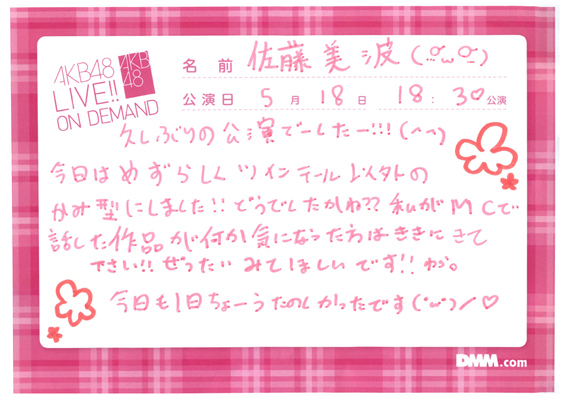 AKB48
LIVE!!
ON DEMAND
AKB
48
名前 佐藤美波(
公演日 5月18日 18:30公演
久しぶりの公演でーしたー!!!(^^)
今日はめずらしくツインテール
かみ型にしました!! どうでしたかね?? 私がMCで
話した作品が何か気になった方はききにきて
下さい!! ぜったいみてほしいです!! わら。
今日も1日ちょーうたのしかったです(･ω･)ノ♡
DMM.com